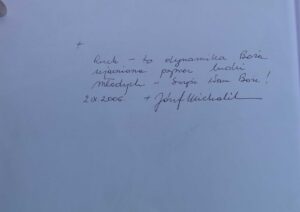 +
Ruch – to dynamika Boża
ujawniona przez ludzi
młodych – Szczęść Wam Boże!
2 IX 2006 + Józef Michalik